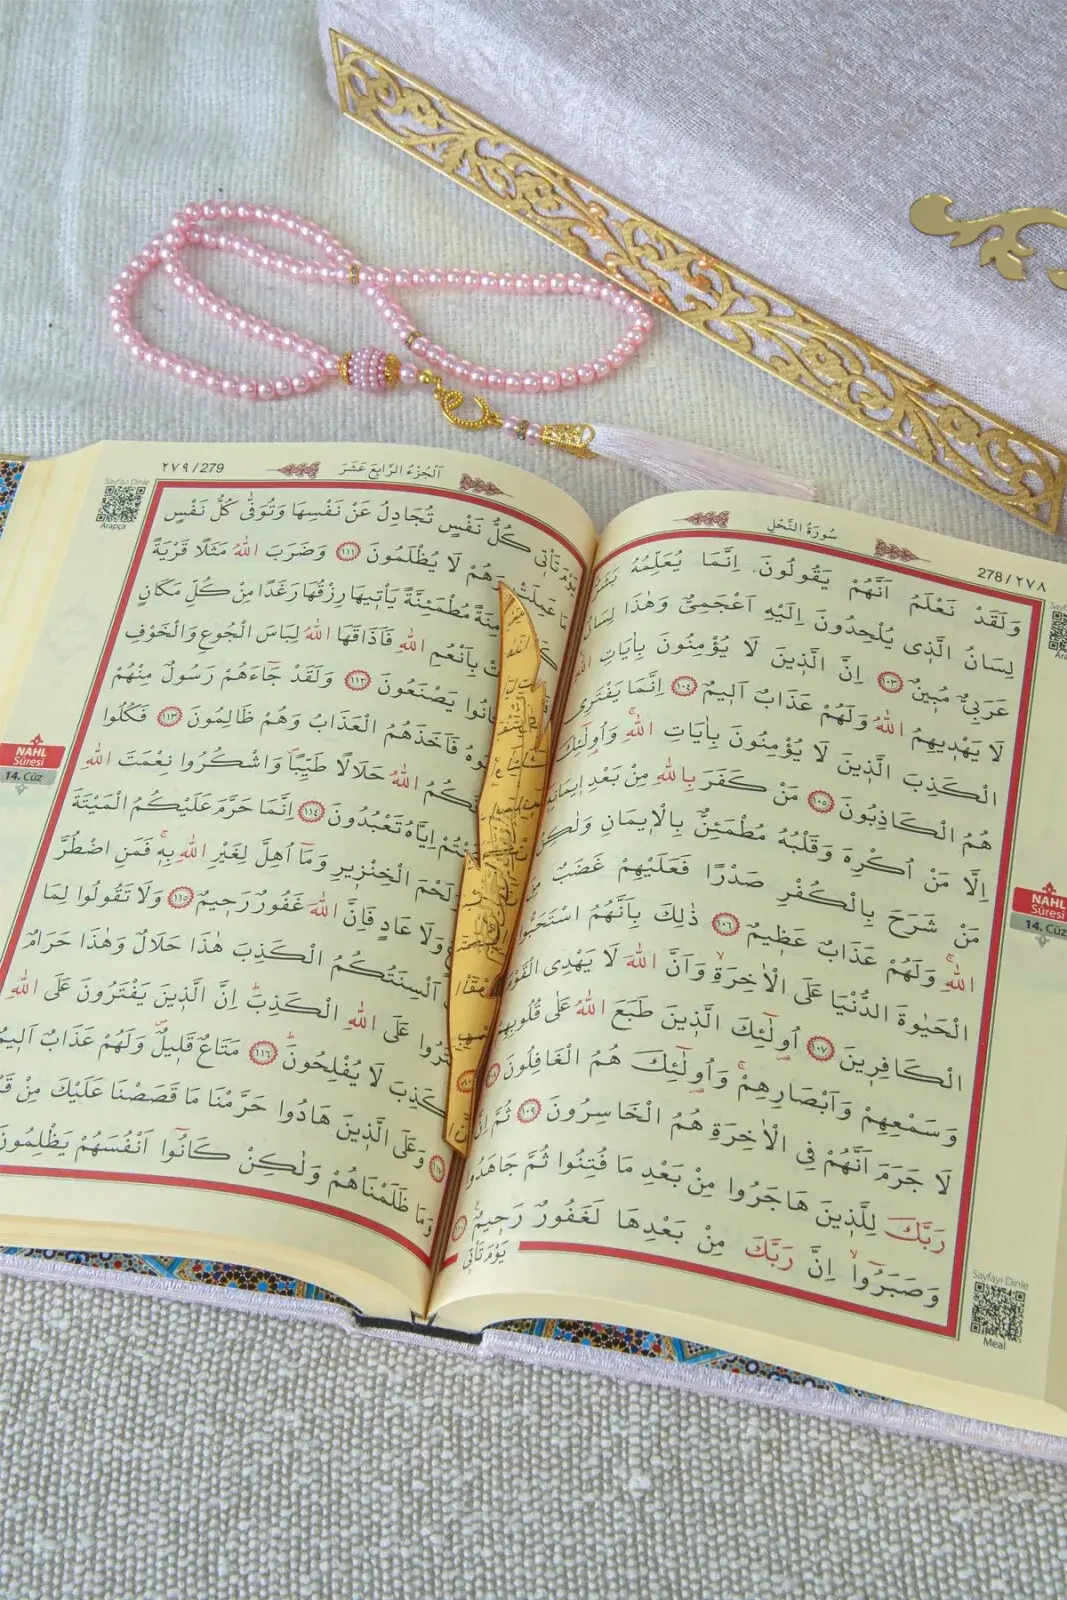 278/٢٧٨ سُورَةُ النَّحْلِ
وَلَقَدْ نَعْلَمُ اَنَّهُمْ يَقُولُونَ اِنَّمَا يُعَلِّمُهُ بَشَرٌ
لِسَانُ الَّذٖى يُلْحِدُونَ اِلَيْهِ اَعْجَمِىٌّ وَهٰذَا لِسَانٌ
عَرَبِىٌّ مُبٖينٌ ١٠٣ اِنَّ الَّذٖينَ لَا يُؤْمِنُونَ بِاٰيَاتِ اللّٰهِ
لَا يَهْدٖيهِمُ اللّٰهُ وَلَهُمْ عَذَابٌ اَلٖيمٌ ١٠٤ اِنَّمَا يَفْتَرِى
الْكَذِبَ الَّذٖينَ لَا يُؤْمِنُونَ بِاٰيَاتِ اللّٰهِ وَاُولٰٓئِكَ
هُمُ الْكَاذِبُونَ ١٠٥ مَنْ كَفَرَ بِاللّٰهِ مِنْ بَعْدِ اٖيمَانِهٖ
اِلَّا مَنْ اُكْرِهَ وَقَلْبُهُ مُطْمَئِنٌّ بِالْاٖيمَانِ وَلٰكِنْ
مَنْ شَرَحَ بِالْكُفْرِ صَدْرًا فَعَلَيْهِمْ غَضَبٌ مِنَ
اللّٰهِ وَلَهُمْ عَذَابٌ عَظٖيمٌ ١٠٦ ذٰلِكَ بِاَنَّهُمُ اسْتَحَبُّوا
الْحَيٰوةَ الدُّنْيَا عَلَى الْاٰخِرَةِ وَاَنَّ اللّٰهَ لَا يَهْدِى الْقَوْمَ
الْكَافِرٖينَ ١٠٧ اُولٰٓئِكَ الَّذٖينَ طَبَعَ اللّٰهُ عَلٰى قُلُوبِهِمْ
وَسَمْعِهِمْ وَاَبْصَارِهِمْ وَاُولٰٓئِكَ هُمُ الْغَافِلُونَ
لَا جَرَمَ اَنَّهُمْ فِى الْاٰخِرَةِ هُمُ الْخَاسِرُونَ ١٠٩ ثُمَّ اِنَّ
رَبَّكَ لِلَّذٖينَ هَاجَرُوا مِنْ بَعْدِ مَا فُتِنُوا ثُمَّ جَاهَدُوا
وَصَبَرُٓوا اِنَّ رَبَّكَ مِنْ بَعْدِهَا لَغَفُورٌ رَحٖيمٌ ١١٠
يَوْمَ تَاْتٖى
NAHL
Sûresi
14. Cüz
Sayfayı Dinle
Meal
اَلْجُزْءُ الرَّابِعَ عَشَرَ ٢٧٩/279
Sayfayı Dinle
Arapça
يَوْمَ تَاْتٖى كُلُّ نَفْسٍ تُجَادِلُ عَنْ نَفْسِهَا وَتُوَفّٰى كُلُّ نَفْسٍ
مَا عَمِلَتْ وَهُمْ لَا يُظْلَمُونَ ١١١ وَضَرَبَ اللّٰهُ مَثَلًا قَرْيَةً
مُطْمَئِنَّةً يَاْتٖيهَا رِزْقُهَا رَغَدًا مِنْ كُلِّ مَكَانٍ
بِاَنْعُمِ اللّٰهِ فَاَذَاقَهَا اللّٰهُ لِبَاسَ الْجُوعِ وَالْخَوْفِ
يَصْنَعُونَ ١١٢ وَلَقَدْ جَٓاءَهُمْ رَسُولٌ مِنْهُمْ
فَاَخَذَهُمُ الْعَذَابُ وَهُمْ ظَالِمُونَ ١١٣ فَكُلُوا
اللّٰهُ حَلَالًا طَيِّبًا وَاشْكُرُوا نِعْمَتَ اللّٰهِ
اِيَّاهُ تَعْبُدُونَ ١١٤ اِنَّمَا حَرَّمَ عَلَيْكُمُ الْمَيْتَةَ
وَلَحْمَ الْخِنْزٖيرِ وَمَٓا اُهِلَّ لِغَيْرِ اللّٰهِ بِهٖ فَمَنِ اضْطُرَّ
وَلَا عَادٍ فَاِنَّ اللّٰهَ غَفُورٌ رَحٖيمٌ ١١٥ وَلَا تَقُولُوا لِمَا
اَلْسِنَتُكُمُ الْكَذِبَ هٰذَا حَلَالٌ وَهٰذَا حَرَامٌ
عَلَى اللّٰهِ الْكَذِبَ اِنَّ الَّذٖينَ يَفْتَرُونَ عَلَى اللّٰهِ
الْكَذِبَ لَا يُفْلِحُونَ ١١٦ مَتَاعٌ قَلٖيلٌ وَلَهُمْ عَذَابٌ اَلٖيمٌ
١١٧ وَعَلَى الَّذٖينَ هَادُوا حَرَّمْنَا مَا قَصَصْنَا عَلَيْكَ مِنْ
وَمَا ظَلَمْنَاهُمْ وَلٰكِنْ كَانُٓوا اَنْفُسَهُمْ يَظْلِمُونَ
NAHL
Sûresi
14. Cüz